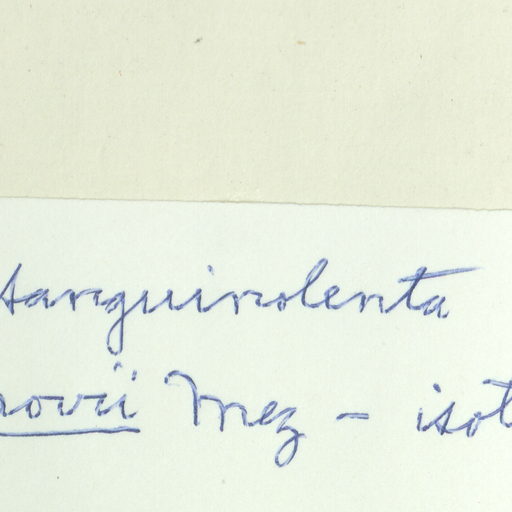 sanguinolenta
Mez - isot